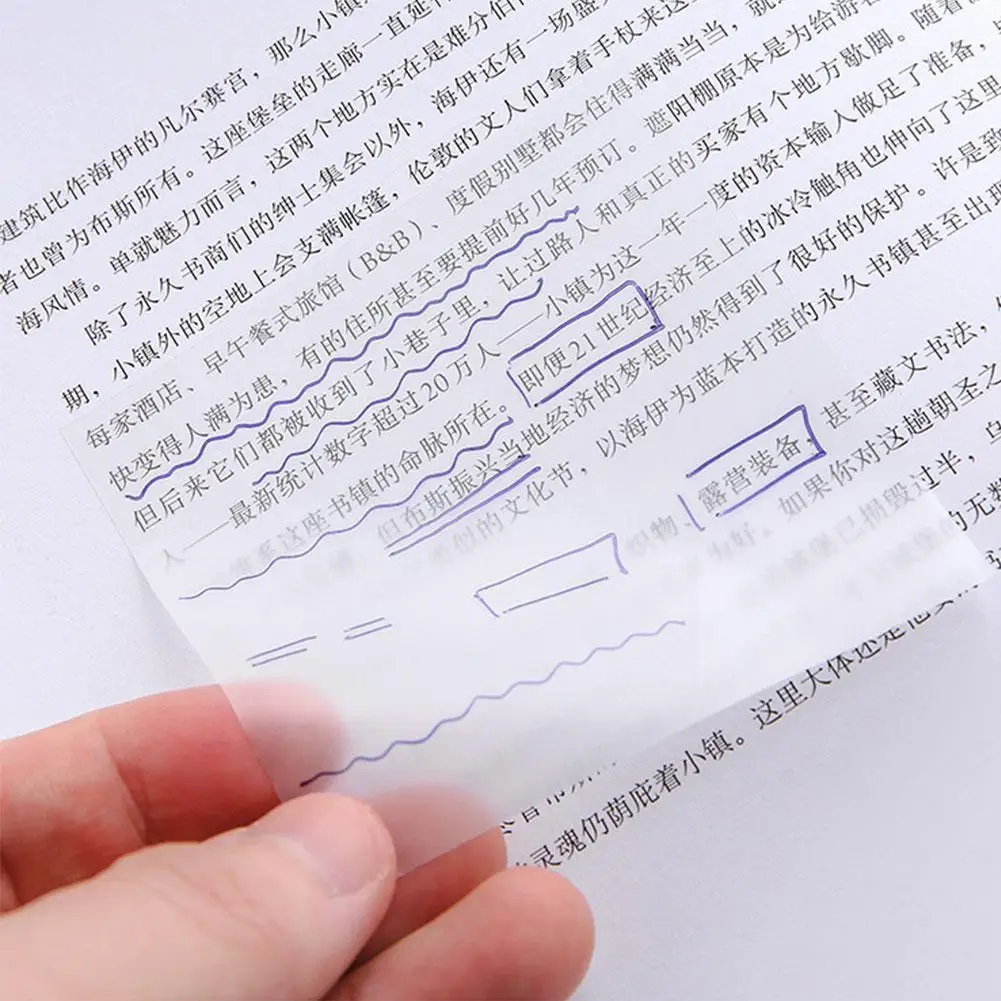 建筑比作海伊的凡尔赛宫，那么小镇
者也曾为布斯所有。这座堡垒的走廊一直延
海风情。单就魅力而言，这两个地方实在是难分伯
除了永久书商们的绅士集会以外，海伊还有一场盛
期，小镇外的空地上会支满帐篷，伦敦的文人们拿着手杖来这
每家酒店、早午餐式旅馆（B&B）、度假别墅都会住得满满当当，就
快变得人满为患，有的住所甚至要提前好几年预订。遮阳棚原本是为给游客
但后来它们都被收到了小巷子里，让过路人和真正的买家有个地方歇脚。随着
人——最新统计数字超过20万人——小镇为这一年一度的资本输入做足了准备，
至这座书镇的命脉所在。即便21世纪经济至上的冰冷触角也伸向了这里
但布斯振兴当地经济的梦想仍然得到了很好的保护。许是致
类似的文化节，以海伊为蓝本打造的永久书镇甚至出现
织物、露营装备，甚至藏文书法，
为好。如果你对这趟朝圣之
堡已损毁过半，
的无数
这里大体还是他
灵魂仍荫庇着小镇。